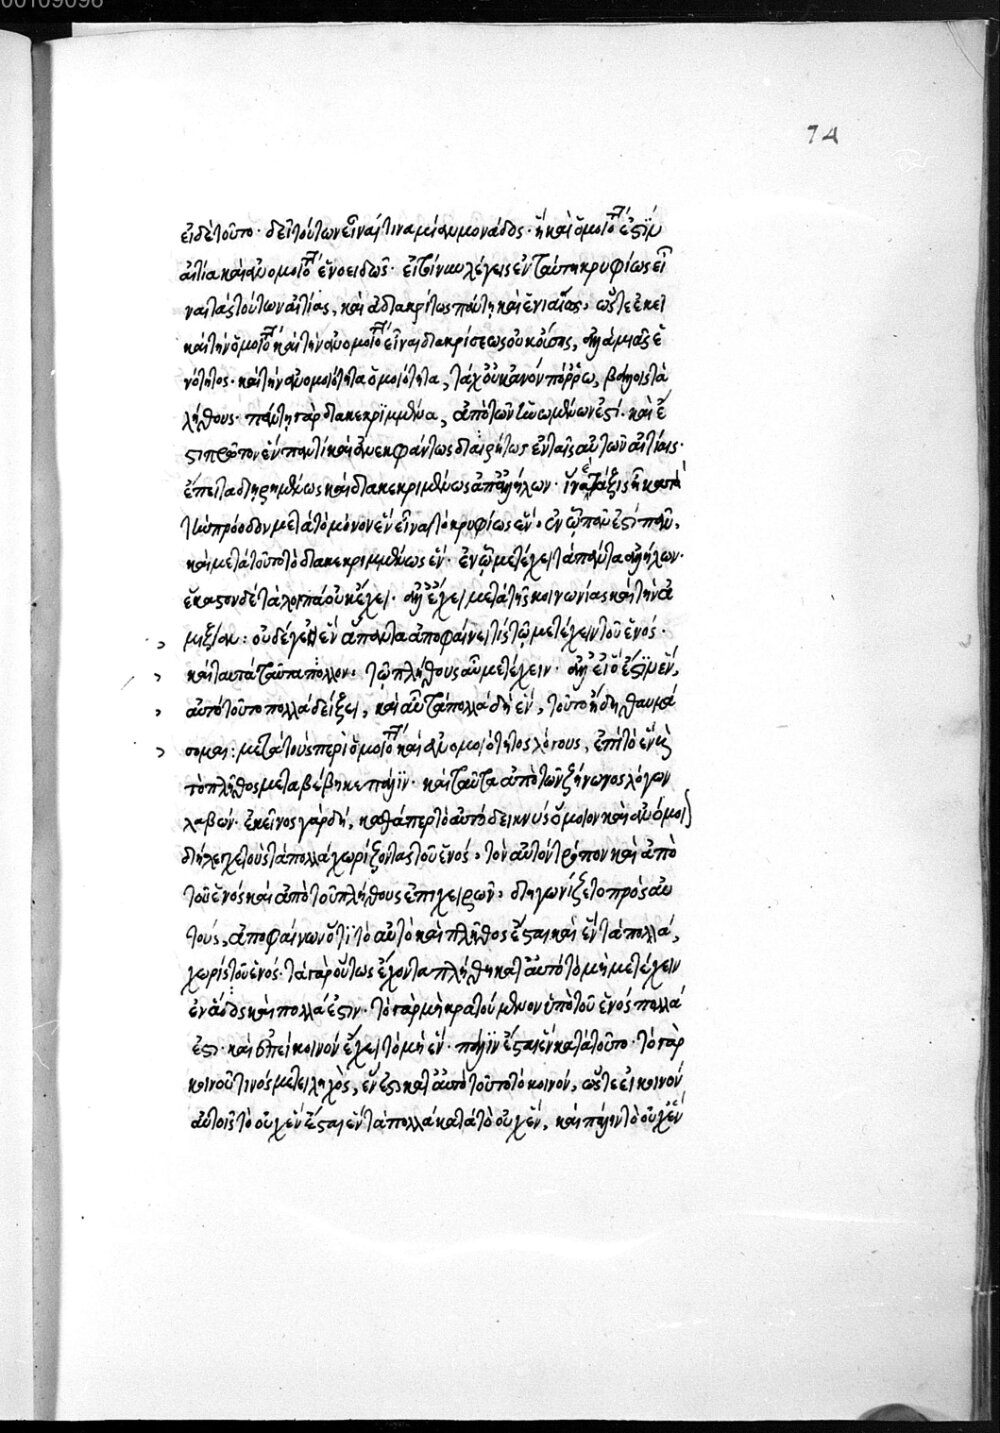 74
εἰ δὲ τοῦτο· δεῖ τούτων εἶναι τινα μίαν μονάδος· ἣ καὶ ὁμοιότητός ἐστιν
αἰτία καὶ ἀνομοιότητος ἑνοειδῶς· εἰ τοίνυν λέγεις ἐν ταύτῃ κρυφίως εἶ
ναι τὰς τούτων αἰτίας, καὶ ἀδιακρίτως πάντη καὶ ἑνιαίως, ὥστε ἐκεῖ
καὶ τὴν ὁμοιότητα καὶ τὴν ἀνομοιότητα εἶναι διακρίσεως οὐκ οὔσης, ἀλλὰ μιᾶς ἑ
νότητος· καὶ τὴν ἀνομοιότητα ὁμοιότητα, τάχ' οὐκ ἂν οὐ πόρρω, βάλλοις τἀ
ληθοῦς· πάντη γὰρ διακεκριμμένα, ἀπὸ τῶν ἡνωμένων ἐστί· καὶ ἔ
στι πρῶτον ἓν παντὶ καὶ ἀνεκφάντως διαιρέτως ἐν ταῖς αὐτῶν αἰτίαις·
ἔπειτα διῃρημένως καὶ διακεκριμένως ἀπ' ἀλλήλων· ἵνα τάξις ᾖ κατὰ
τὴν πρόοδον μετὰ τὸ μόνον ἓν εἶναι τὸ κρυφίως ἕν· ἐν ᾧ πᾶν ἐστι πᾶν,
καὶ μετὰ τοῦτο τὸ διακεκριμμένως ἕν· ἐν ᾧ μετέχει τὰ πάντα ἀλλήλων·
ἕκαστον δὲ τὰ λοιπὰ οὐκ ἔχει· ἀλλ' ἔχει μετὰ τῆς κοινωνίας καὶ τὴν ἀ
μιξίαν: οὐδέ γε ἂν ἓν ἅπαντα ἀποφαίνει τις τῷ μετέχειν τοῦ ἑνός·
καὶ ταυτὰ ταῦτα πολλὸν· τῷ πλήθους αὖ μετέχειν· ἀλλ' εἰ ὅ ἐστιν ἕν,
αὐτὸ τοῦτο πολλὰ δείξει, καὶ αὖ τὰ πολλὰ δὴ ἕν, τοῦτο ἤδη θαυμά
σομαι: μετὰ τοὺς περὶ ὁμοιότητος καὶ ἀνομοιότητος λόγους, ἐπὶ τὸ ἓν καὶ
τὸ πλῆθος μεταβέβηκε πάλιν· καὶ ταῦτα ἀπὸ τῶν ζήνωνος λόγων
λαβών· ἐκεῖνος γὰρ δή, καθάπερ τὸ αὐτὸ δεικνὺς ὅμοιον καὶ ἀνόμοιον
διήλεγχε τοὺς τὰ πολλὰ χωρίζοντας τοῦ ἑνός, τὸν αὐτὸν τρόπον καὶ ἀπὸ
τοῦ ἑνὸς καὶ ἀπὸ τοῦ πλήθους ἐπιχειρῶν, διηγωνίζετο πρὸς αὐ
τούς, ἀποφαίνων ὅτι τὸ αὐτὸ καὶ πλῆθος ἔσται καὶ ἓν τὰ πολλά,
χωρὶς τοῦ ἑνός· τὰ γὰρ οὕτως ἔχοντα πλήθη κατ' αὐτὸ τὸ μὴ μετέχειν
ἑνάδος καὶ πολλά ἐστιν· τὸ γὰρ μὴ κρατούμενον ὑπὸ τοῦ ἑνὸς πολλά
ἐστι· καὶ ἐπεὶ κοινὸν ἔχει τὸ μὴ ἕν· πάλιν ἔσται ἓν κατὰ τοῦτο· τὸ γὰρ
κοινοῦ τινός μετειληχὸς, ἕν ἐστι κατ' αὐτὸ τοῦτο τὸ κοινόν, ὥστε εἰ κοινὸν
αὐτοῖς τὸ οὐχ ἕν ἔσται ἓν τὰ πολλὰ κατὰ τὸ οὐχ ἕν, καὶ πάλιν τὸ οὐχ ἓν